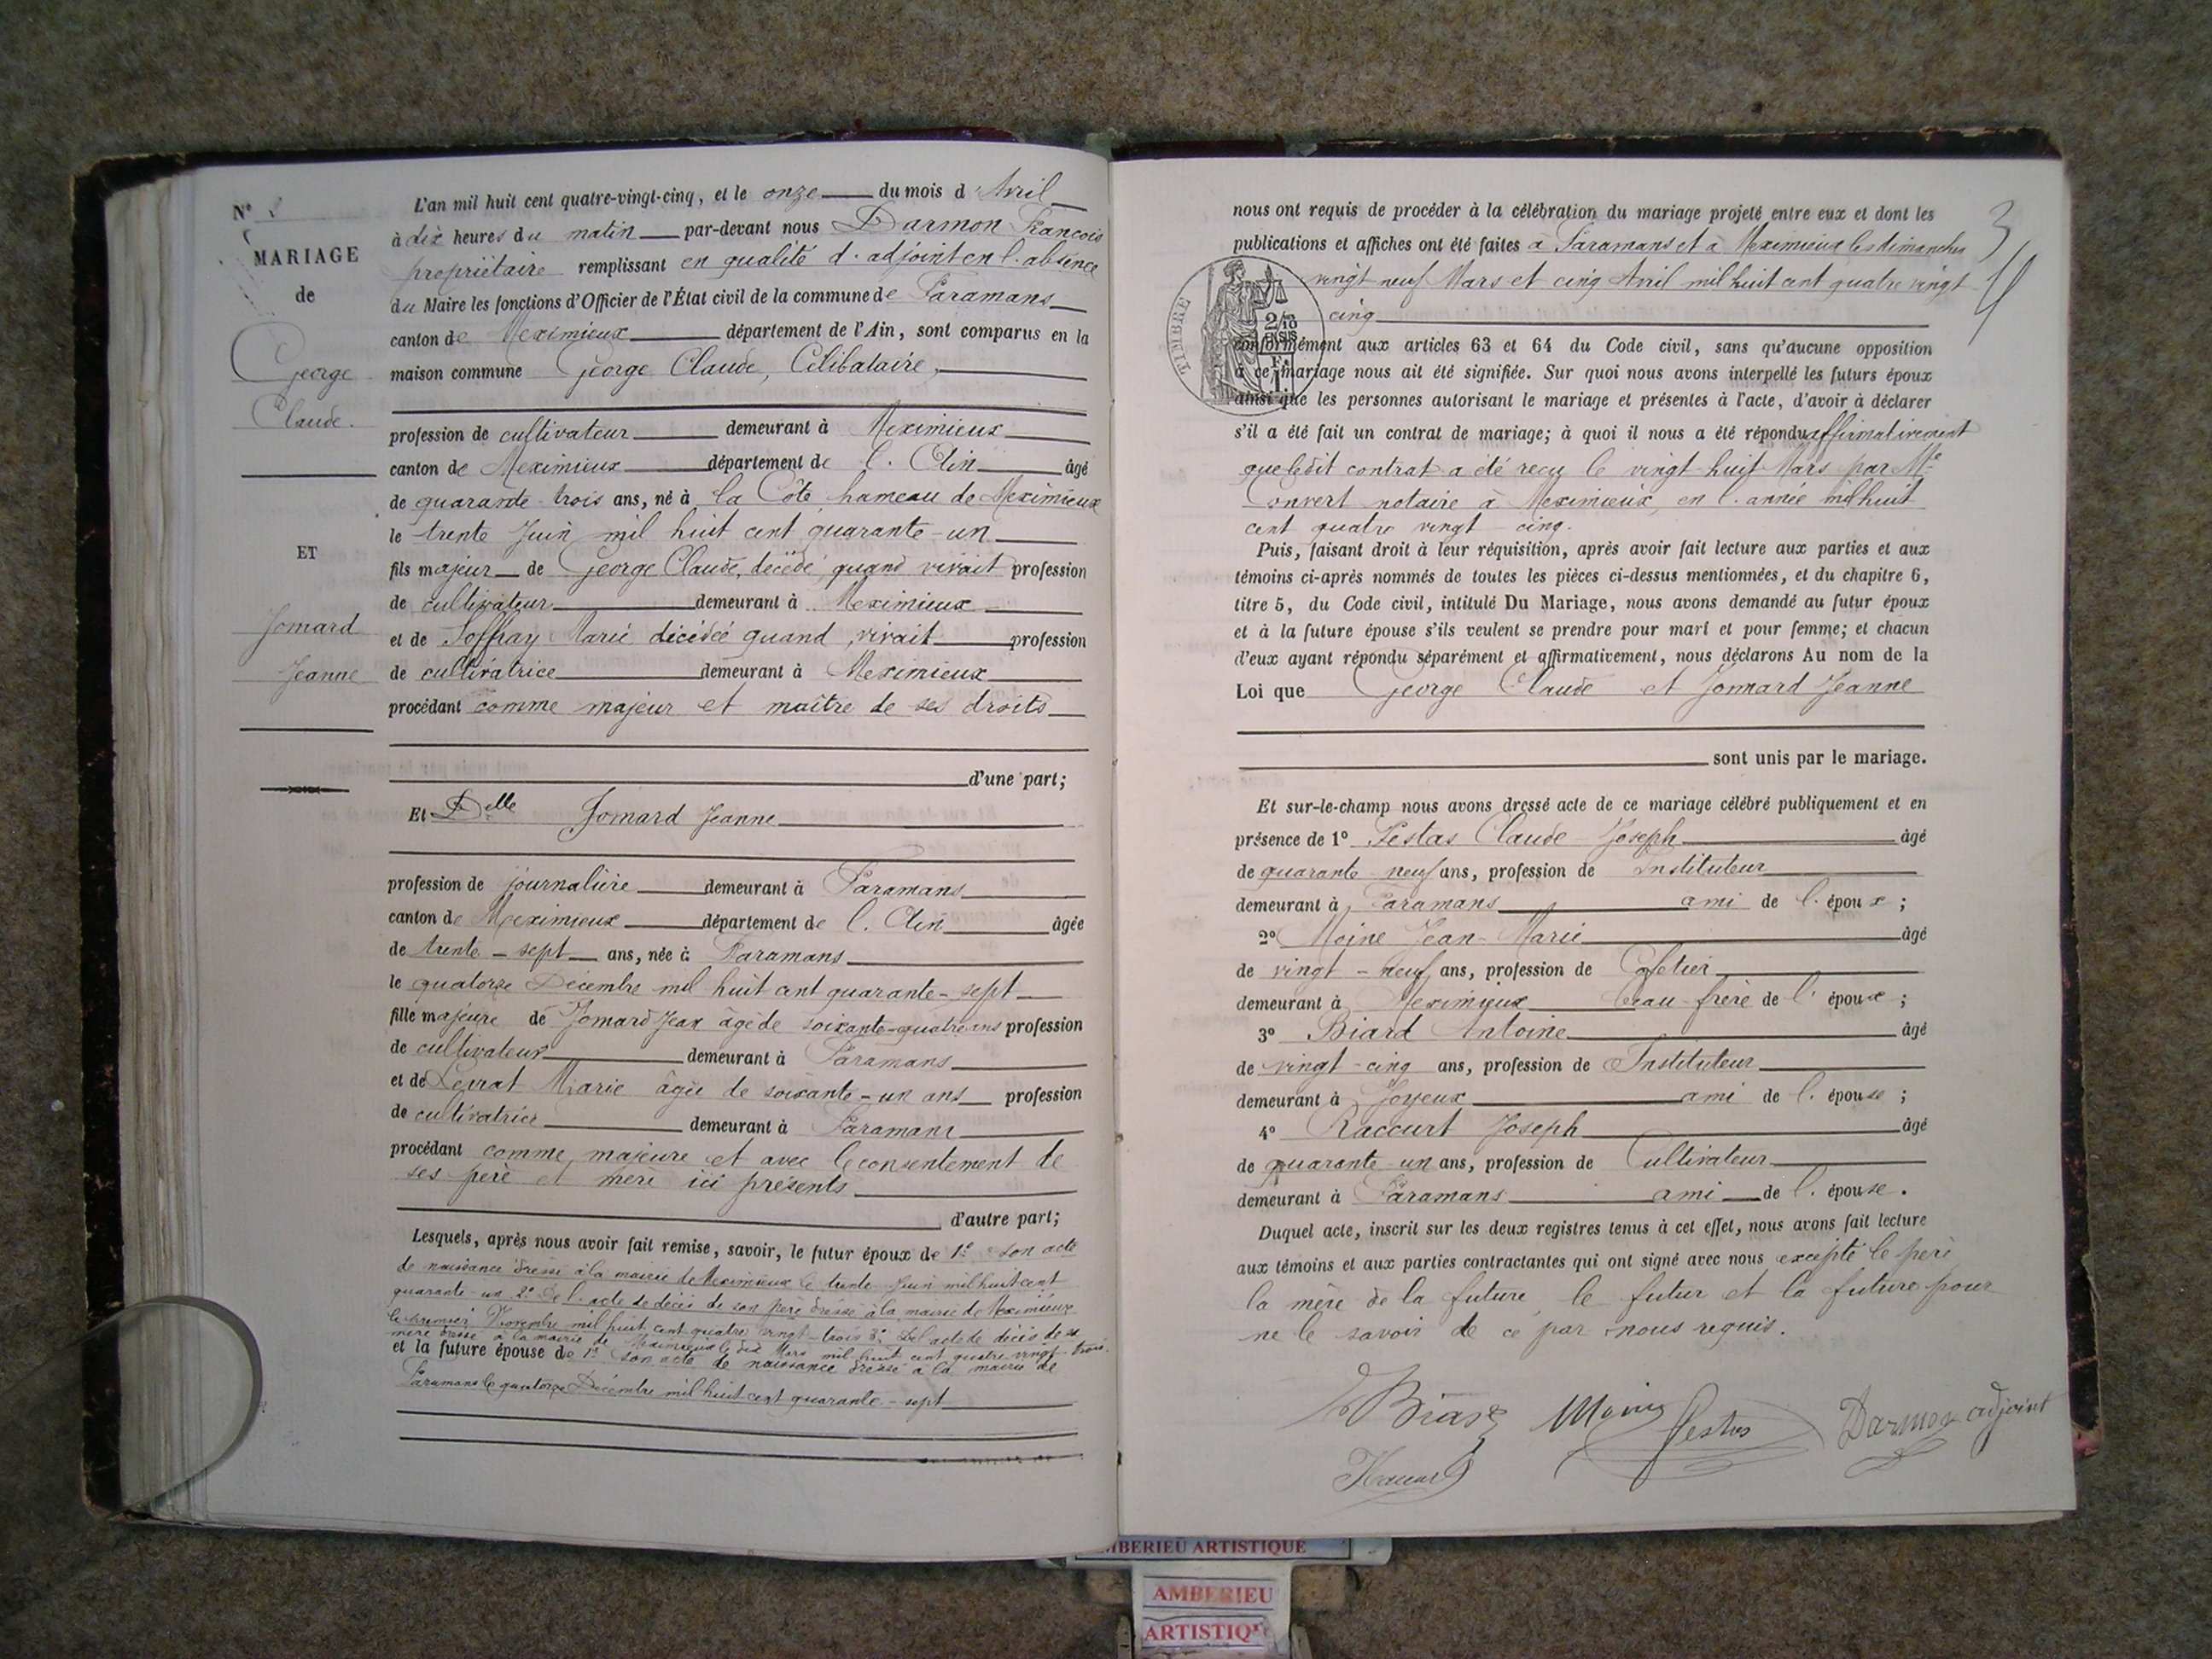 N°
MARIAGE
de
George
Claude.
ET
Jomard
Jeanne
L'an mil huit cent quatre-vingt-cinq, et le onze du mois d'Avril
à dix heures du matin par-devant nous Darmon Francois
propriétaire remplissant en qualité d'adjoint en l'absence
du Maire les fonctions d'Officier de l'État civil de la commune de Faramans
canton de Meximieux département de l'Ain, sont comparus en la
maison commune George Claude, Célibataire,
profession de cultivateur demeurant à Meximieux
canton de Meximieux département de l'Ain âgé
de quarante-trois ans, né à la Côte, hameau de Meximieux
le trente Juin mil huit cent quarante-un
fils majeur de George Claude, décédé, quand vivait profession
de cultivateur demeurant à Meximieux
et de Joffray Marie décédée quand vivait profession
de cultivatrice demeurant à Meximieux
procédant comme majeur et maître de ses droits
d'une part;
Et Delle Jomard Jeanne
profession de journalière demeurant à Faramans
canton de Meximieux département de l'Ain âgée
de trente-sept ans, née à Faramans
le quatorze Décembre mil huit cent quarante-sept
fille majeure de Jomard Jean âgé de soixante-quatre ans profession
de cultivateur demeurant à Faramans
et de Levrat Marie âgée de soixante-un ans profession
de cultivatrice demeurant à Faramans
procédant comme majeure et avec le consentement de
ses père et mère ici présents
d'autre part;
Lesquels, après nous avoir fait remise, savoir, le futur époux de 1° son acte
de naissance dressé à la mairie de Meximieux le trente Juin mil huit cent
quarante-un 2° de l'acte de décès de son père dressé à la mairie de Meximieux
le premier Novembre mil huit cent quatre vingt-trois 3° Del acte de décès de sa
mère dressé à la mairie de Meximieux le dix Mars mil huit cent quatre vingt trois.
et la future épouse de 1° son acte de naissance dressé à la mairie de
Faramans le quatorze Décembre mil huit cent quarante-sept
3
nous ont requis de procéder à la célébration du mariage projeté entre eux et dont les
publications et affiches ont été faites à Faramans et à Meximieux les dimanches
vingt neuf Mars et cinq Avril mil huit cent quatre vingt
cinq
TIMBRE
2/10
conformément aux articles 63 et 64 du Code civil, sans qu'aucune opposition
à ce mariage nous ait été signifiée. Sur quoi nous avons interpellé les futurs époux
ainsi que les personnes autorisant le mariage et présentes à l'acte, d'avoir à déclarer
s'il a été fait un contrat de mariage; à quoi il nous a été répondu affirmativement
que ledit contrat a été reçu le vingt huit Mars par Me
Convert notaire à Meximieux, en l'année mil huit
cent quatre vingt cinq.
Puis, faisant droit à leur réquisition, après avoir fait lecture aux parties et aux
témoins ci-après nommés de toutes les pièces ci-dessus mentionnées, et du chapitre 6,
titre 5, du Code civil, intitulé Du Mariage, nous avons demandé au futur époux
et à la future épouse s'ils veulent se prendre pour mari et pour femme; et chacun
d'eux ayant répondu séparément et affirmativement, nous déclarons Au nom de la
Loi que George Claude et Jomard Jeanne
sont unis par le mariage.
Et sur-le-champ nous avons dressé acte de ce mariage célébré publiquement et en
présence de 1° Festas Claude-Joseph âgé
de quarante neuf ans, profession de Instituteur
demeurant à Faramans ami de l'époux;
2° Moine Jean-Marie âgé
de vingt-neuf ans, profession de Cafetier
demeurant à Meximieux beau-frère de l'époux;
3° Biard Antoine âgé
de vingt-cinq ans, profession de Instituteur
demeurant à Joyeux ami de l'épouse;
4° Raccurt Joseph âgé
de quarante-un ans, profession de Cultivateur
demeurant à Faramans ami de l'épouse.
Duquel acte, inscrit sur les deux registres tenus à cet effet, nous avons fait lecture
aux témoins et aux parties contractantes qui ont signé avec nous excepté le père
la mère de la future, le futur et la future pour
ne le savoir de ce par nous requis.
Biard Moine Festas Darmon adjoint
AMBERIEU ARTISTIQUE
AMBERIEU
ARTISTIQUE